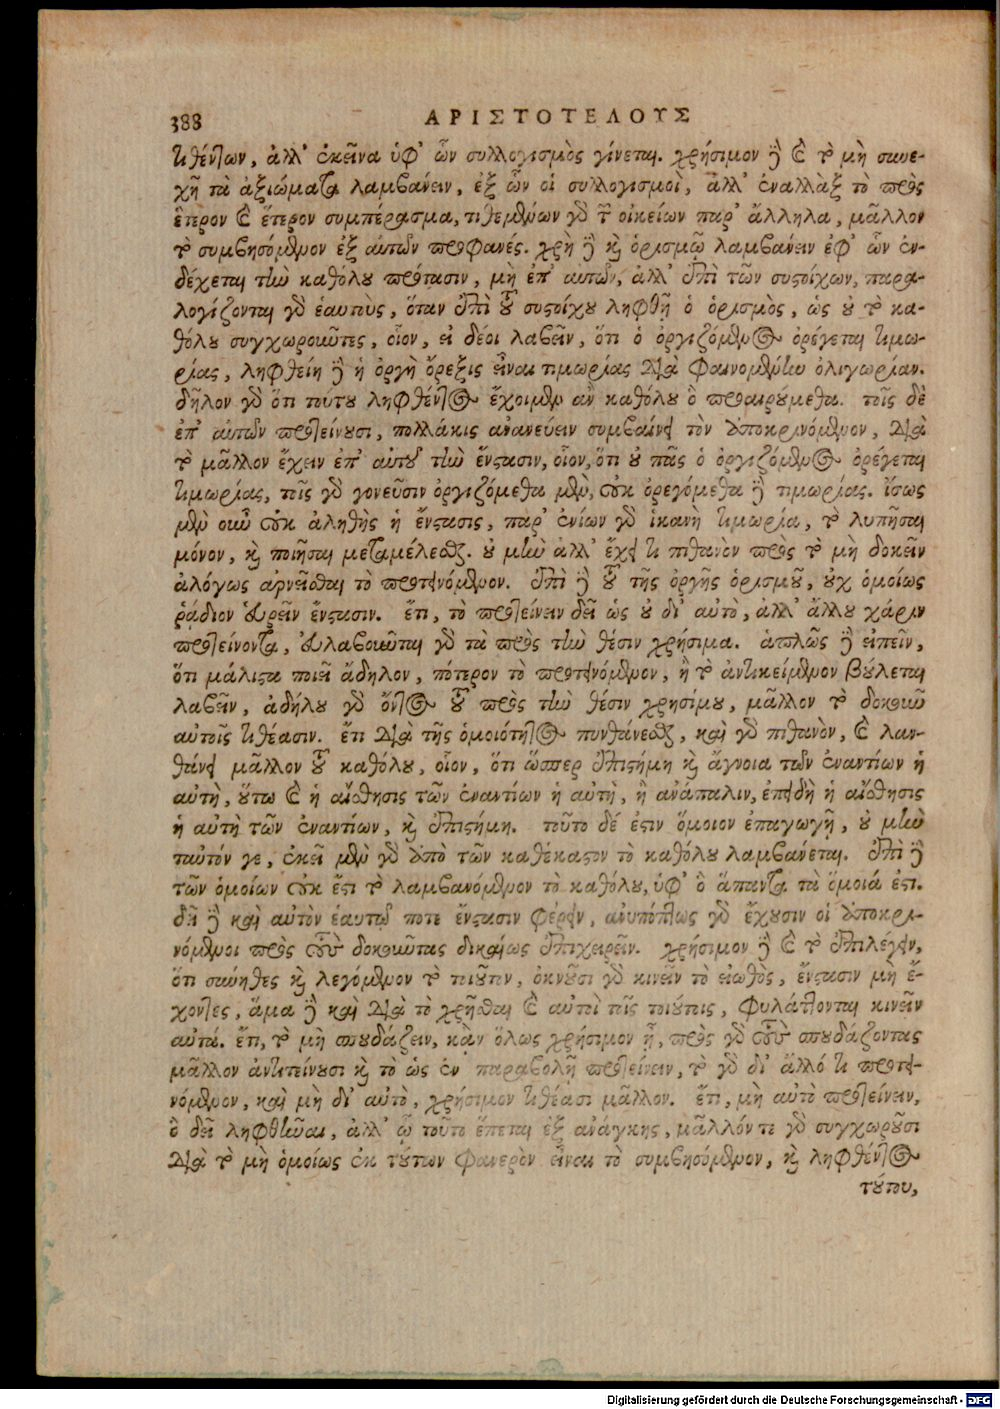 388 ΑΡΙΣΤΟΤΕΛΟΥΣ
τιθέντων, ἀλλ' ἐκεῖνα ὑφ' ὧν συλλογισμὸς γίνεται. χρήσιμον δὲ καὶ τὸ μὴ συνε-
χῆ τὰ ἀξιώματα λαμβάνειν, ἐξ ὧν οἱ συλλογισμοὶ, ἀλλ' ἐναλλὰξ τὸ πρὸς
ἕτερον καὶ ἕτερον συμπέρασμα, τιθεμένων γὰρ τῶν οἰκείων παρ' ἄλληλα, μᾶλλον
τὸ συμβησόμενον ἐξ αὐτῶν προφανές. χρὴ δὲ καὶ ὁρισμῷ λαμβάνειν ἐφ' ὧν ἐν-
δέχεται τὴν καθόλου πρότασιν, μὴ ἐπ' αυτῶν, ἀλλ' ἐπὶ τῶν συστοίχων, παρα-
λογίζονται γὰρ ἑαυτοὺς, ὅταν ἐπὶ τοῦ συστοίχου ληφθῇ ὁ ὁρισμὸς, ὡς οὐ τὸ κα-
θόλου συγχωροῦντες, οἷον, εἰ δέοι λαβεῖν, ὅτι ὁ ὀργιζόμενος ὀρέγεται τιμω-
ρίας, ληφθείη δὲ ἡ ὀργὴ ὄρεξις εἶναι τιμωρίας διὰ φαινομένην ὀλιγωρίαν.
δῆλον γὰρ ὅτι τούτου ληφθέντος ἔχοιμεν ἂν καθόλου ὃ προαιρούμεθα. τοῖς δὲ
ἐπ' αὐτῶν προτείνουσι, πολλάκις ἀνανεύειν συμβαίνει τὸν ἀποκρινόμενον, διὰ
τὸ μᾶλλον ἔχειν ἐπ' αὐτοῦ τὴν ἔνστασιν, οἷον, ὅτι οὐ πᾶς ὁ ὀργιζόμενος ὀρέγεται
τιμωρίας, τοῖς γὰρ γονεῦσιν ὀργιζόμεθα μὲν, οὐκ ὀρεγόμεθα δὲ τιμωρίας. ἴσως
μὲν οὖν οὐκ ἀληθὴς ἡ ἔνστασις, παρ' ἐνίων γὰρ ἱκανὴ τιμωρία, τὸ λυπῆσαι
μόνον, καὶ ποιῆσαι μεταμέλεσθαι. οὐ μὴν ἀλλ' ἔχει τι πιθανὸν πρὸς τὸ μὴ δοκεῖν
ἀλόγως ἀρνεῖσθαι τὸ προτεινόμενον. ἐπὶ δὲ τοῦ τῆς ὀργῆς ὁρισμοῦ, οὐχ ὁμοίως
ῥᾴδιον εὑρεῖν ἔνστασιν. ἔτι, τὸ προτείνειν δεῖ ὡς οὐ δι' αὐτὸ, ἀλλ' ἄλλου χάριν
προτείνοντα, εὐλαβοῦνται γὰρ τὰ πρὸς τὴν θέσιν χρήσιμα. ἁπλῶς δὲ εἰπεῖν,
ὅτι μάλιστα ποιεῖ ἄδηλον, πότερον τὸ προτεινόμενον, ἢ τὸ ἀντικείμενον βούλεται
λαβεῖν, ἀδήλου γὰρ ὄντος τοῦ πρὸς τὴν θέσιν χρησίμου, μᾶλλον τὸ δοκοῦν
αὐτοῖς τιθέασιν. ἔτι διὰ τῆς ὁμοιότητος πυνθάνεσθαι, καὶ γὰρ πιθανὸν, καὶ λαν-
θάνει μᾶλλον τοῦ καθόλου, οἷον, ὅτι ὥσπερ ἐπιστήμη καὶ ἄγνοια τῶν ἐναντίων ἡ
αὐτὴ, οὕτω καὶ ἡ αἴσθησις τῶν ἐναντίων ἡ αὐτὴ, ἢ ἀνάπαλιν, ἐπειδὴ ἡ αἴσθησις
ἡ αὐτὴ τῶν ἐναντίων, καὶ ἐπιστήμη. τοῦτο δέ ἐστιν ὅμοιον ἐπαγωγῇ, οὐ μὴν
ταὐτόν γε, ἐκεῖ μὲν γὰρ ἀπὸ τῶν καθέκαστον τὸ καθόλου λαμβάνεται. ἐπὶ δὲ
τῶν ὁμοίων οὐκ ἔστι τὸ λαμβανόμενον τὸ καθόλου, ὑφ' ὃ ἅπαντα τὰ ὅμοιά ἐστι.
δεῖ δὲ καὶ αὐτὸν ἑαυτῷ ποτε ἔνστασιν φέρειν, ἀνυπόπτως γὰρ ἔχουσιν οἱ ἀποκρι-
νόμενοι πρὸς τοὺς δοκοῦντας δικαίως ἐπιχειρεῖν. χρήσιμον δὲ καὶ τὸ ἐπιλέγειν,
ὅτι σύνηθες καὶ λεγόμενον τὸ τοιοῦτον, ὀκνοῦσι γὰρ κινεῖν τὸ εἰωθὸς, ἔνστασιν μὴ ἔ-
χοντες, ἅμα δὲ καὶ διὰ τὸ χρῆσθαι καὶ αὐτοὶ τοῖς τοιούτοις, φυλάττονται κινεῖν
αὐτά. ἔτι, τὸ μὴ σπουδάζειν, κᾂν ὅλως χρήσιμον ᾖ, πρὸς γὰρ τοὺς σπουδάζοντας
μᾶλλον ἀντιτείνουσι καὶ τὸ ὡς ἐν παραβολῇ προτείνειν, τὸ γὰρ δι' ἄλλό τι προτει-
νόμενον, καὶ μὴ δι' αὐτὸ, χρήσιμον τιθέασι μᾶλλον. ἔτι, μὴ αὐτὸ προτείνειν,
ὃ δεῖ ληφθῆναι, ἀλλ' ᾧ τοῦτο ἕπεται ἐξ ἀνάγκης, μᾶλλόν τε γὰρ συγχωροῦσι
διὰ τὸ μὴ ὁμοίως ἐκ τούτων φανερὸν εἶναι τὸ συμβησόμενον, καὶ ληφθέντος
τούτου,
Digitalisierung gefördert durch die Deutsche Forschungsgemeinschaft - DFG